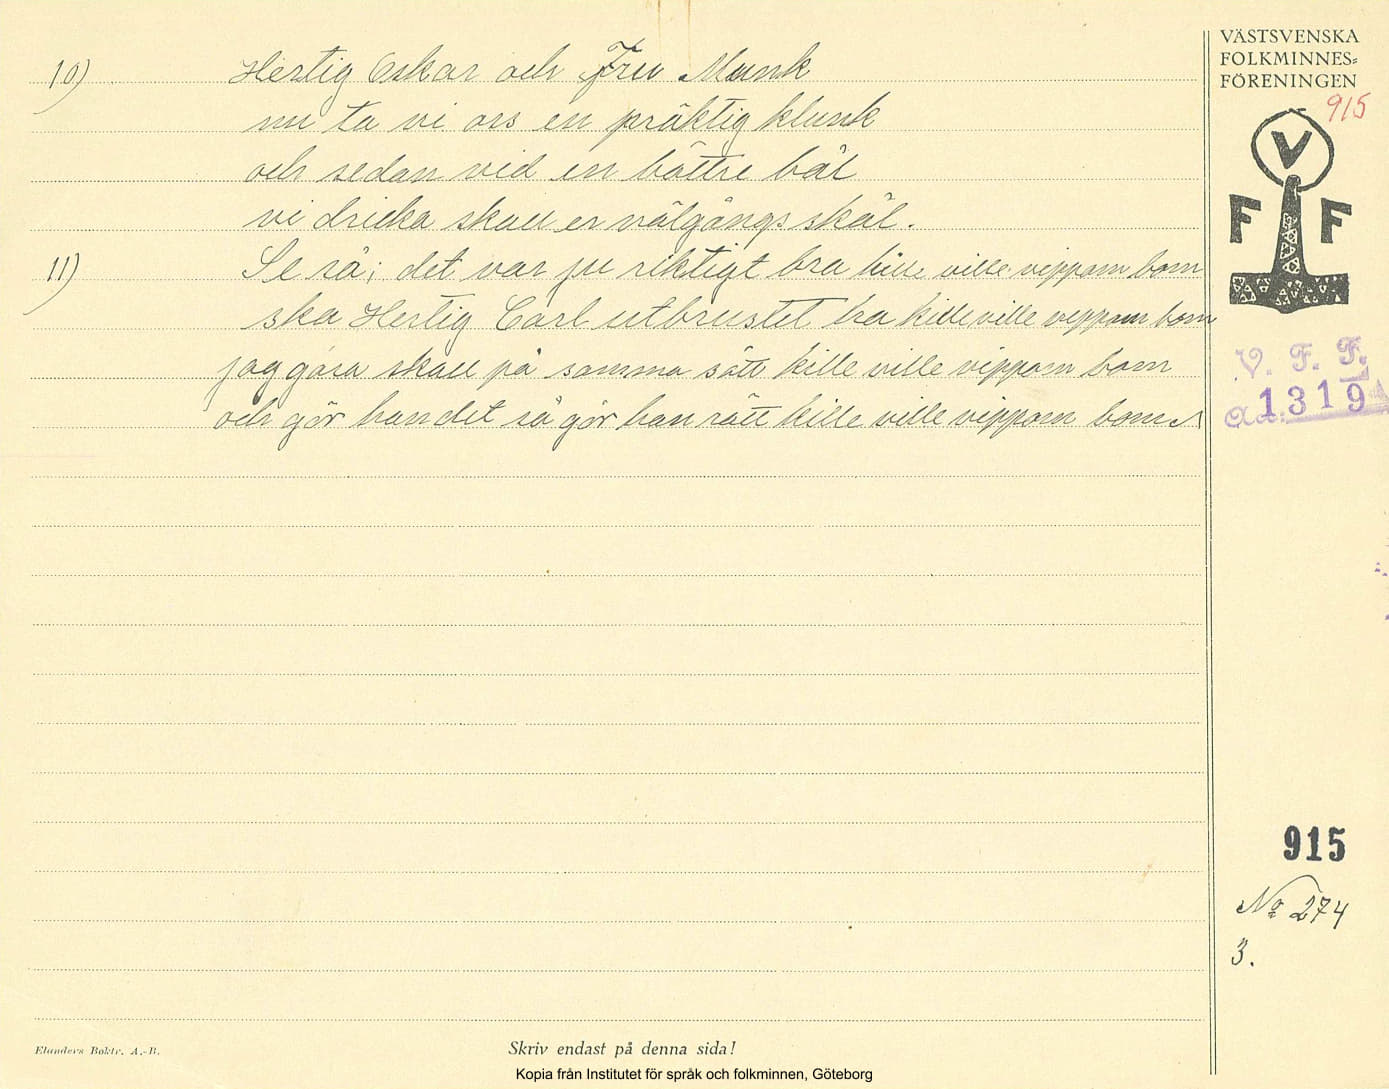 VÄSTSVENSKA
FOLKMINNES=
FÖRENINGEN
915
V
F F
V. F. F.
Ad. 1319
10) Hertig Oskar och Fru Munk
nu ta vi oss en präktig klunk
och sedan vid en bättre bål
vi dricka skall er välgångs skål.
11) Se så; det var ju riktigt bra kille ville vippom bom
ska Hertig Carl utbrustet bra kille ville vippom bom
jag göra skall på samma sätt kille ville vippom bom
och gör han det så gör han rätt kille ville vippom bom
915
No 274
3.
Elanders Boktr. A.-B.
Skriv endast på denna sida!
Kopia från Institutet för språk och folkminnen, Göteborg